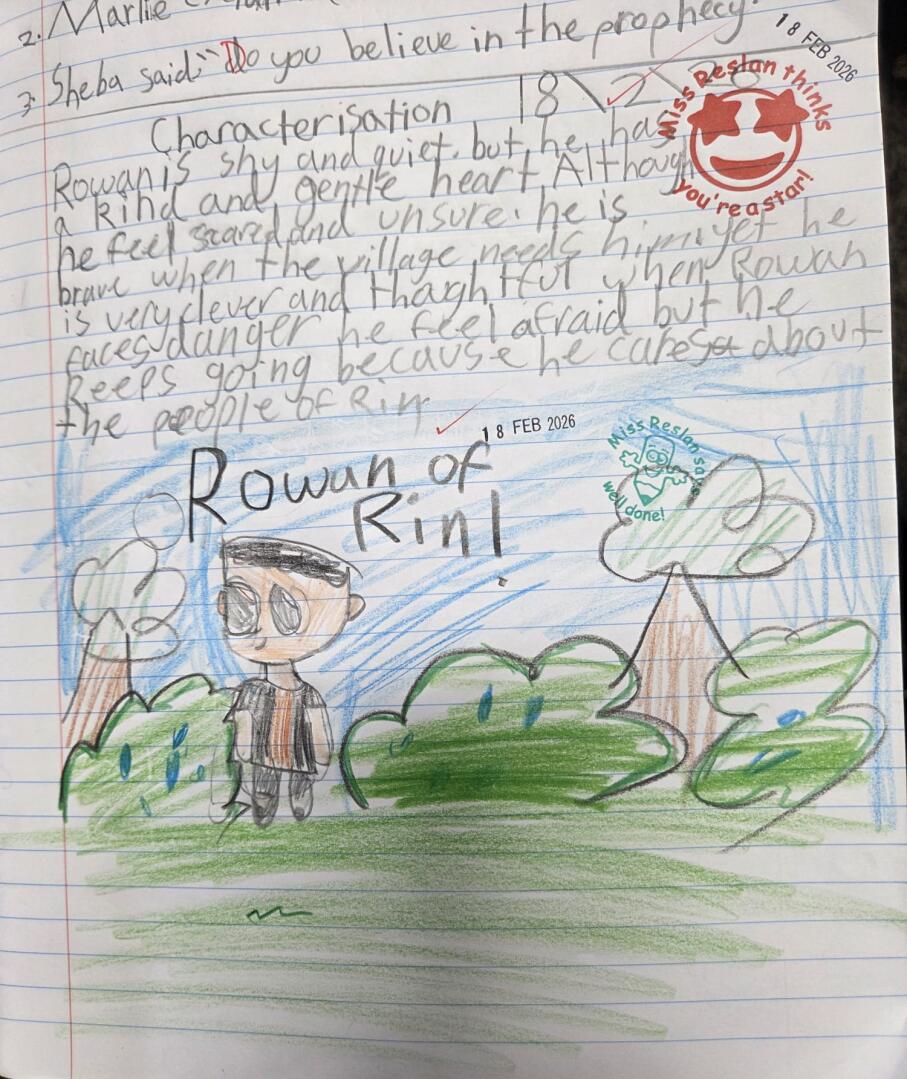 2. Marlie
3. Sheba said: "Do you believe in the prophecy.
18 FEB 2026
18\2\26
Miss Reslan thinks
you're a star!
Characterisation
Rowan is shy and quiet. but he has
a kind and gentle heart. Although
he feel scared and unsure. he is
brave when the village needs him. yet he
is very clever and thaghtful when Rowan
faces danger he feel afraid but he
keeps going because he cares about
the people of Rin
18 FEB 2026
Miss Reslan says
well done!
Rowan of
Rin!